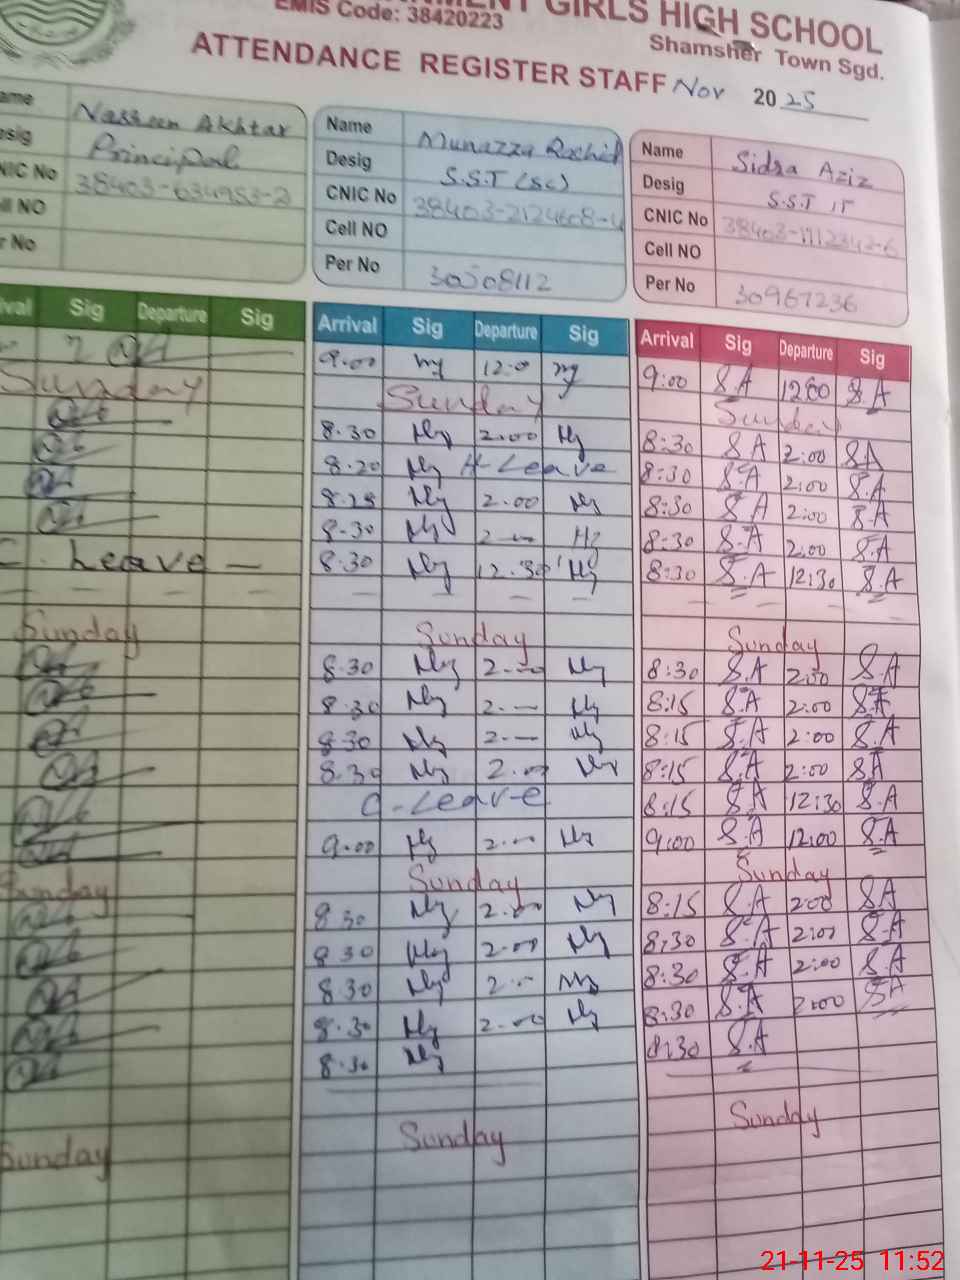 GIRLS HIGH SCHOOL
EMIS Code: 38420223
Shamsher Town Sgd.
ATTENDANCE REGISTER STAFF Nov 2025
Nasreen Akhtar
Principal
CNIC No 38403-6349953-2
Name Munazza Rashid
Desig S.S.T (Sc)
CNIC No 38403-2124608-4
Cell NO
Per No
Name Sidra Aziz
Desig S.S.T IT
CNIC No
Cell NO
Per No 30967236
Sig Departure Sig
Sunday
C. Leave —
Sunday
Sunday
Sunday
Arrival Sig Departure Sig
9.00 My 12.0 My
Sunday
8.30 My 2.00 My
8.20 My H-Leave
8.25 My 2.00 My
8.30 My 2.— My
8.30 My 12.30 My
Sunday
8.30 My 2.00 My
8.30 My 2.— My
8.30 My 2.— My
8.30 My 2.00 My
C-Leave
9.00 My 2.00 My
Sunday
8.30 My 2.00 My
8.30 My 2.00 My
8.30 My 2.— My
8.30 My 2.00 My
8.30 My
Sunday
Arrival Sig Departure Sig
9:00 S.A 12:00 S.A
Sunday
8:30 S.A 2:00 S.A
8:30 S.A 2:00 S.A
8:30 S.A 2:00 S.A
8:30 S.A 2:00 S.A
8:30 S.A 12:30 S.A
Sunday
8:30 S.A 2:00 S.A
8:15 S.A 2:00 S.A
8:15 S.A 2:00 S.A
8:15 S.A 2:00 S.A
8:15 S.A 12:30 S.A
9:00 S.A 12:00 S.A
Sunday
8:15 S.A 2:00 S.A
8:30 S.A 2:00 S.A
8:30 S.A 2:00 S.A
8:30 S.A 2:00 S.A
8:30 S.A
Sunday
21-11-25 11:52